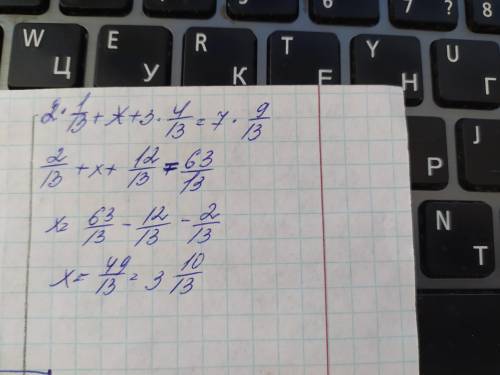 6 7 ? 8
W Ц E У R К T Е Y Н U Г
P J
N Т
2 · 1/13 + x + 3 · 4/13 = 7 · 9/13
2/13 + x + 12/13 = 63/13
x = 63/13 - 12/13 - 2/13
x = 49/13 = 3 10/13